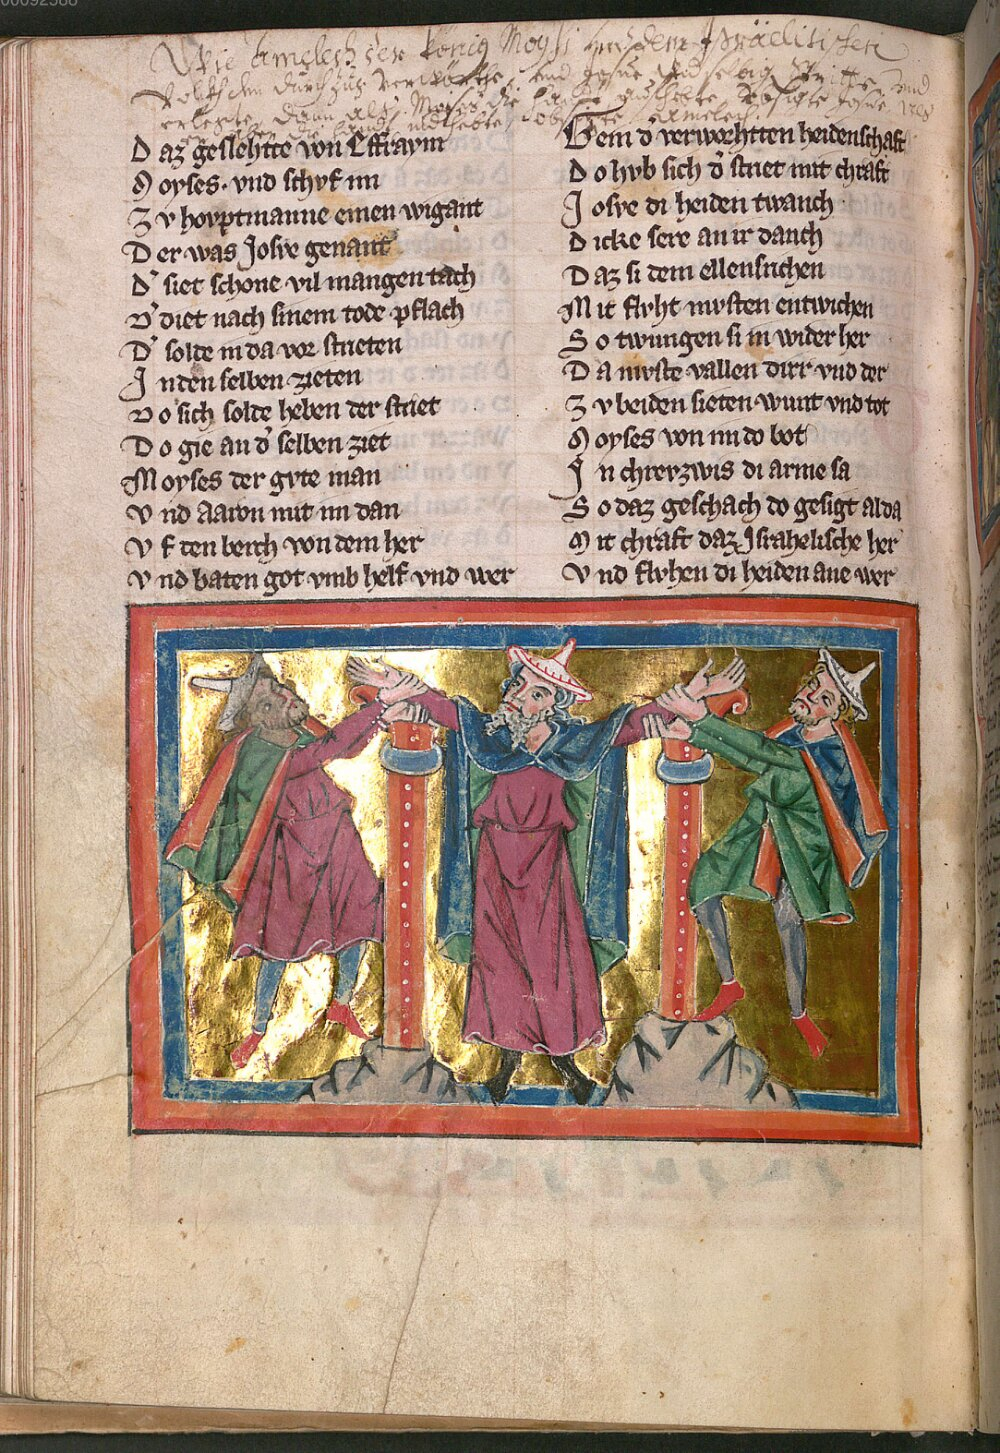 00092588
Wie Amelech der könig Moysi und dem Israëlitischen
Volkh den durchzug
erlegte, dann als Moyses die
D az geslehtte von Effraym
M oyses · vnd schvf im
Z v hovptmanne einen wigant
D er was Josve genant
D͛ siet schone vil mangen tach
D͛ diet nach sinem tode pflach
D͛ solde in da vor strieten
J n den selben zieten
D o sich solde heben der striet
D o gie an d͛ selben ziet
M oyses der gvte man
V nd aaron mit im dan
V f den berch von dem her
V nd baten got vmb helf vnd wer
D em d verworhtten heidenschaft
D o hvb sich d͛ striet mit chraft
J osve di heiden twanch
D icke sere an ir danch
D az si dem ellensrichen
M it flvht mvsten entwichen
S o twungen si in wider her
D a mvste vallen dirr vnd der
Z v beiden sieten wunt vnd tot
M oyses von im do bot
J n chrevzwis di arme sa
S o daz geschach do gesigt alda
M it chraft daz Jsrahelische her
V nd flvhen di heiden ane wer